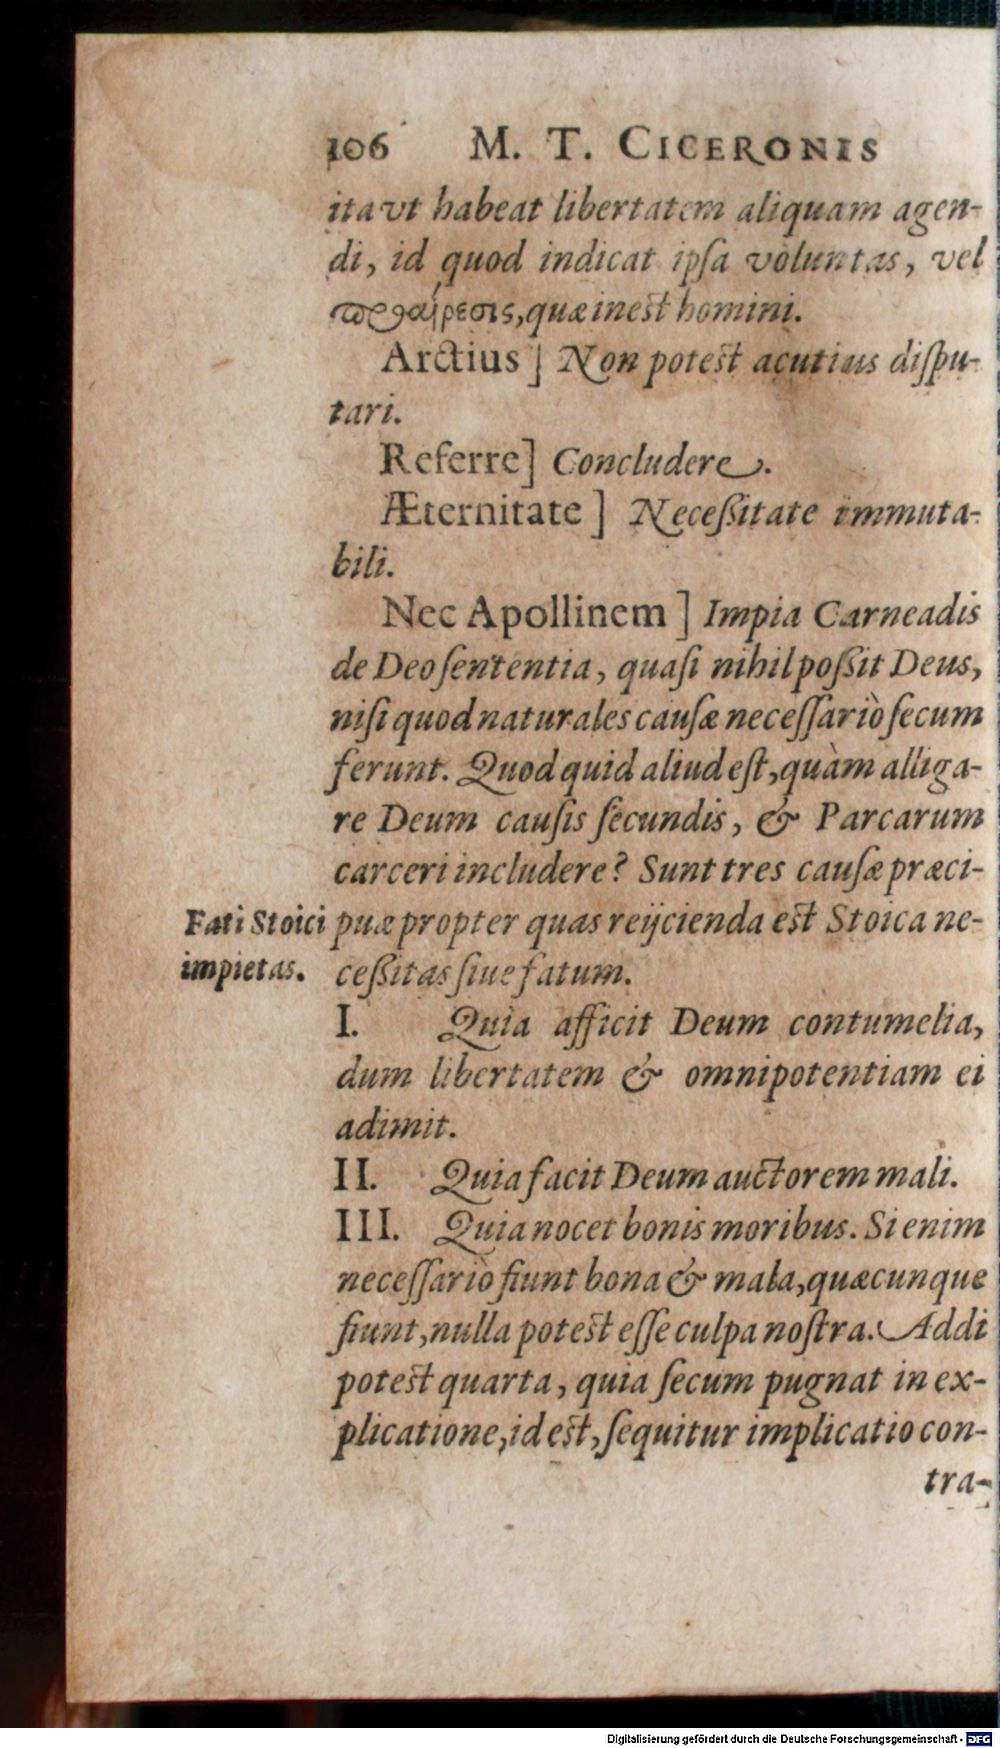 106 M. T. CICERONIS
ita vt habeat libertatem aliquam agen-
di, id quod indicat ipſa voluntas, vel
προαίρεσις, quæ inest homini.
Arctius] Non potest acutius diſpu-
tari.
Referre] Concludere.
Æternitate] Neceſſitate immuta-
bili.
Nec Apollinem] Impia Carneadis
de Deo ſententia, quaſi nihil poſſit Deus,
niſi quod naturales cauſæ neceſſariò ſecum
ferunt. Quod quid aliud eſt, quàm alliga-
re Deum cauſis ſecundis, & Parcarum
carceri includere? Sunt tres cauſæ præci-
Fati Stoici puæ propter quas reijcienda est Stoica ne-
impietas. ceſſitas ſiue fatum.
I. Quia afficit Deum contumelia,
dum libertatem & omnipotentiam ei
adimit.
II. Quia facit Deum auctorem mali.
III. Quia nocet bonis moribus. Si enim
neceſſariò fiunt bona & mala, quæcunque
fiunt, nulla potest eſſe culpa noſtra. Addi
potest quarta, quia ſecum pugnat in ex-
plicatione, id est, ſequitur implicatio con-
tra-
Digitalisierung gefördert durch die Deutsche Forschungsgemeinschaft - DFG